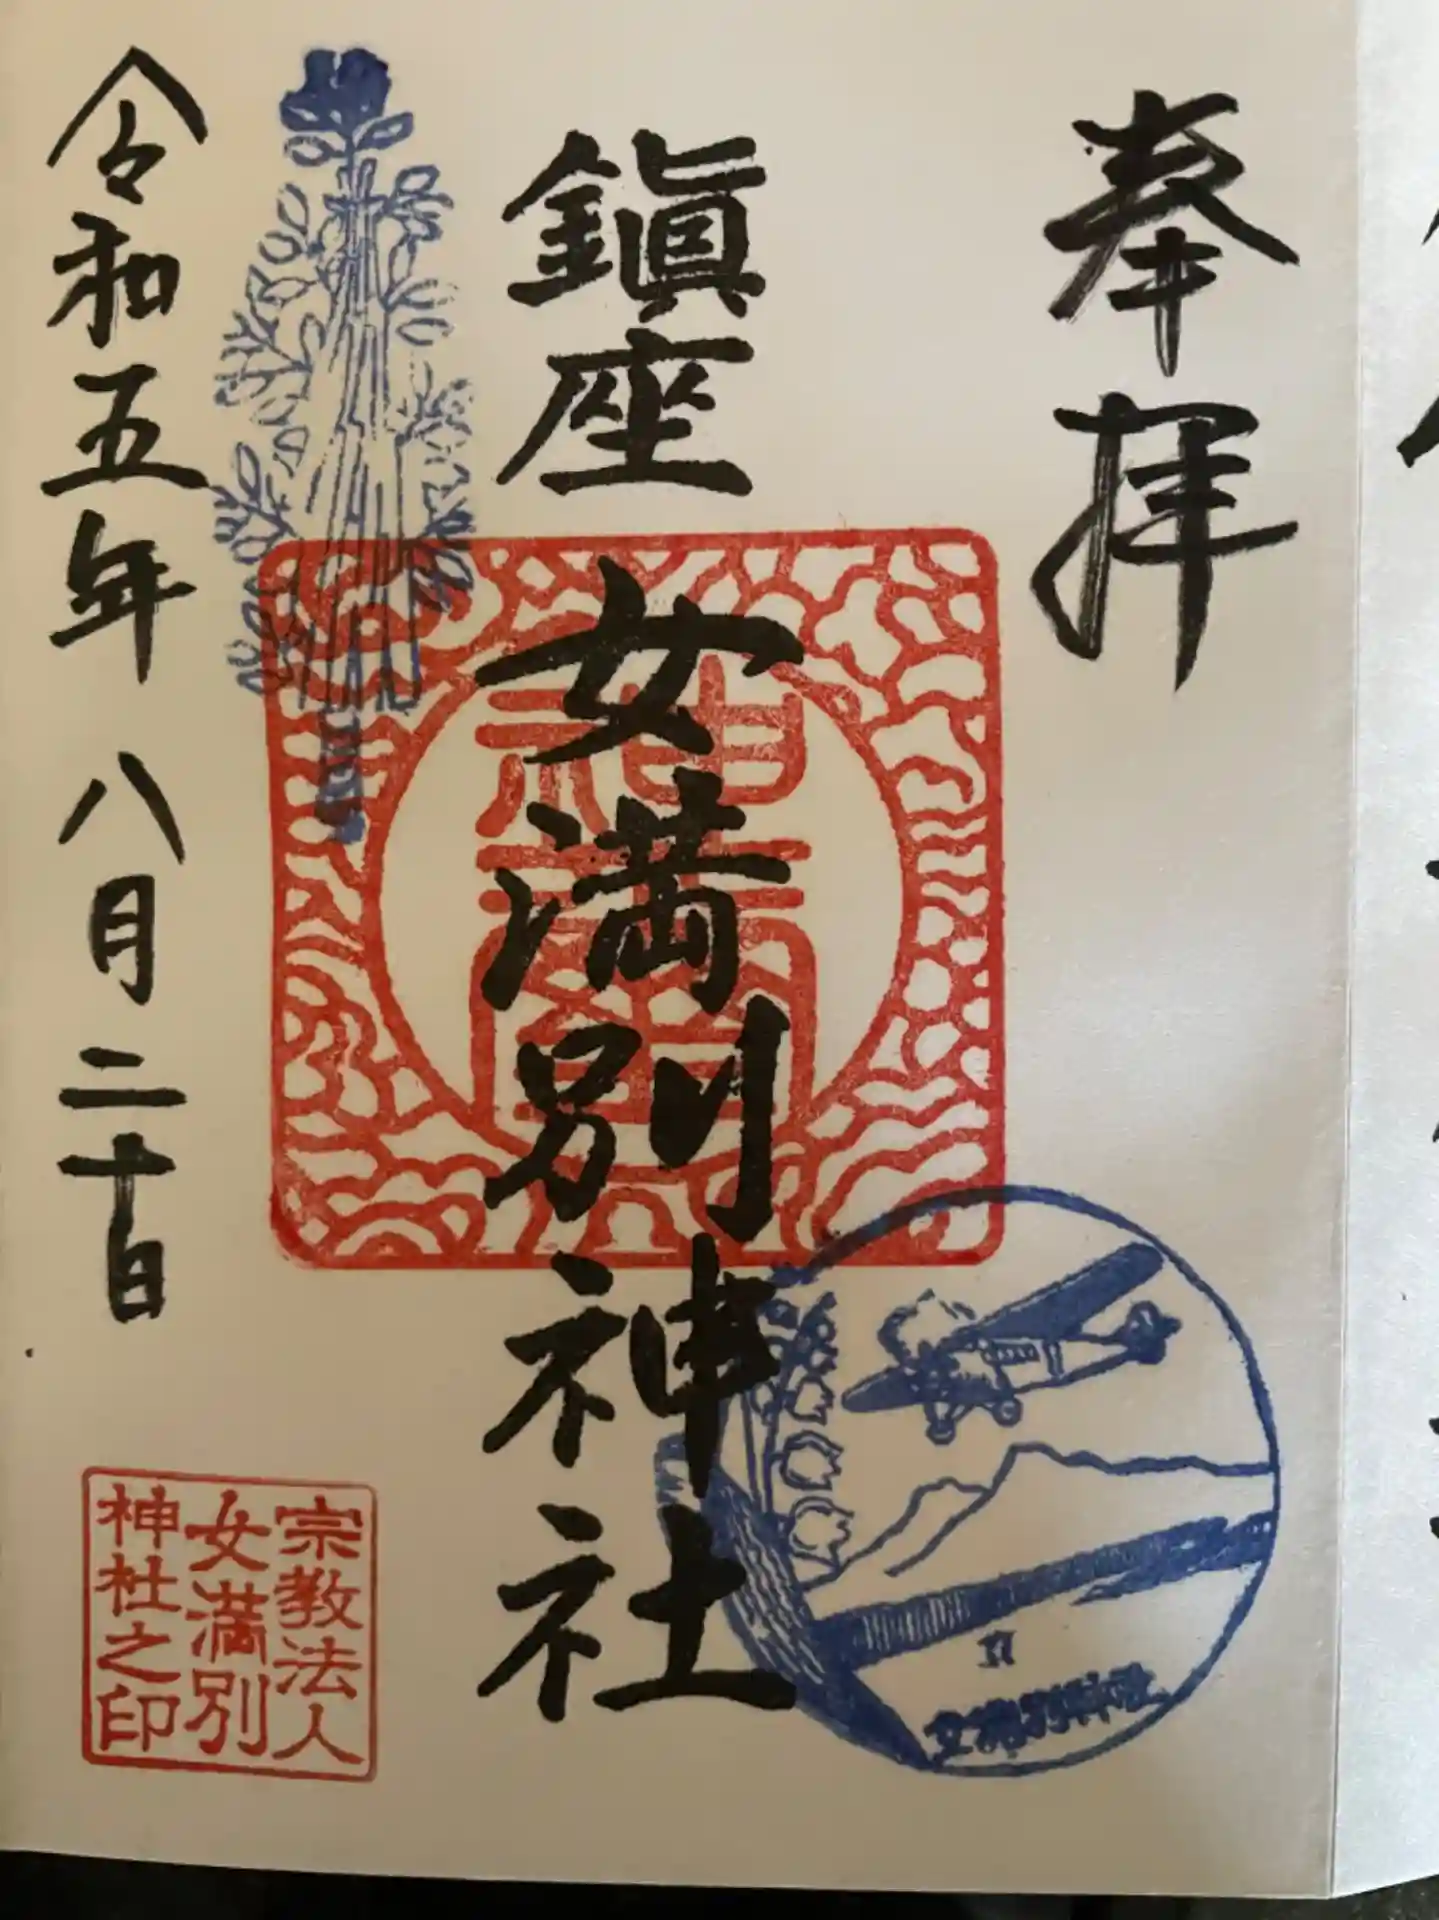 奉拝
鎭座
女満別神社
令和五年 八月二十日
宗教法人
女満別
神社之印
女満別神社